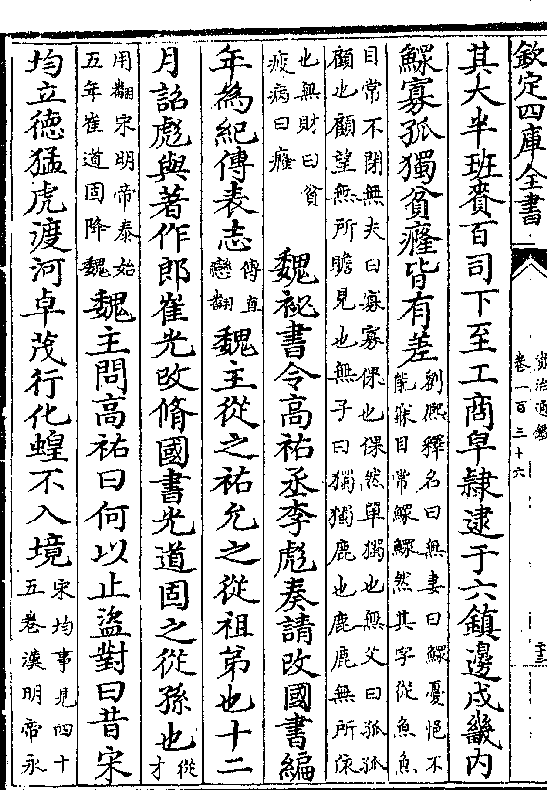 欽定四庫全書
資治通鑑
卷一百三十六
其大半班賚百司下至工商皁隸逮于六鎮邊戍畿内
鰥寡孤獨貧癃皆有差
劉熙釋名曰無妻曰鰥憂悒不
能寐目常鰥鰥然其字從魚魚
目常不閉無夫曰寡寡倮也倮然單獨也無父曰孤孤
顧也顧望無所瞻見也無子曰獨獨鹿也鹿鹿無所依
也無財曰貧
疲病曰癃
魏袐書令高祐丞李彪奏請改國書編
年為紀傳表志
傳直
戀翻
魏主從之祐允之從祖弟也十二
月詔彪與著作郎崔光改脩國書光道固之從孫也
從
才
用翻宋明帝泰始
五年崔道固降魏
魏主問高祐曰何以止盜對曰昔宋
均立德猛虎渡河卓茂行化蝗不入境
宋均事見四十
五卷漢明帝永